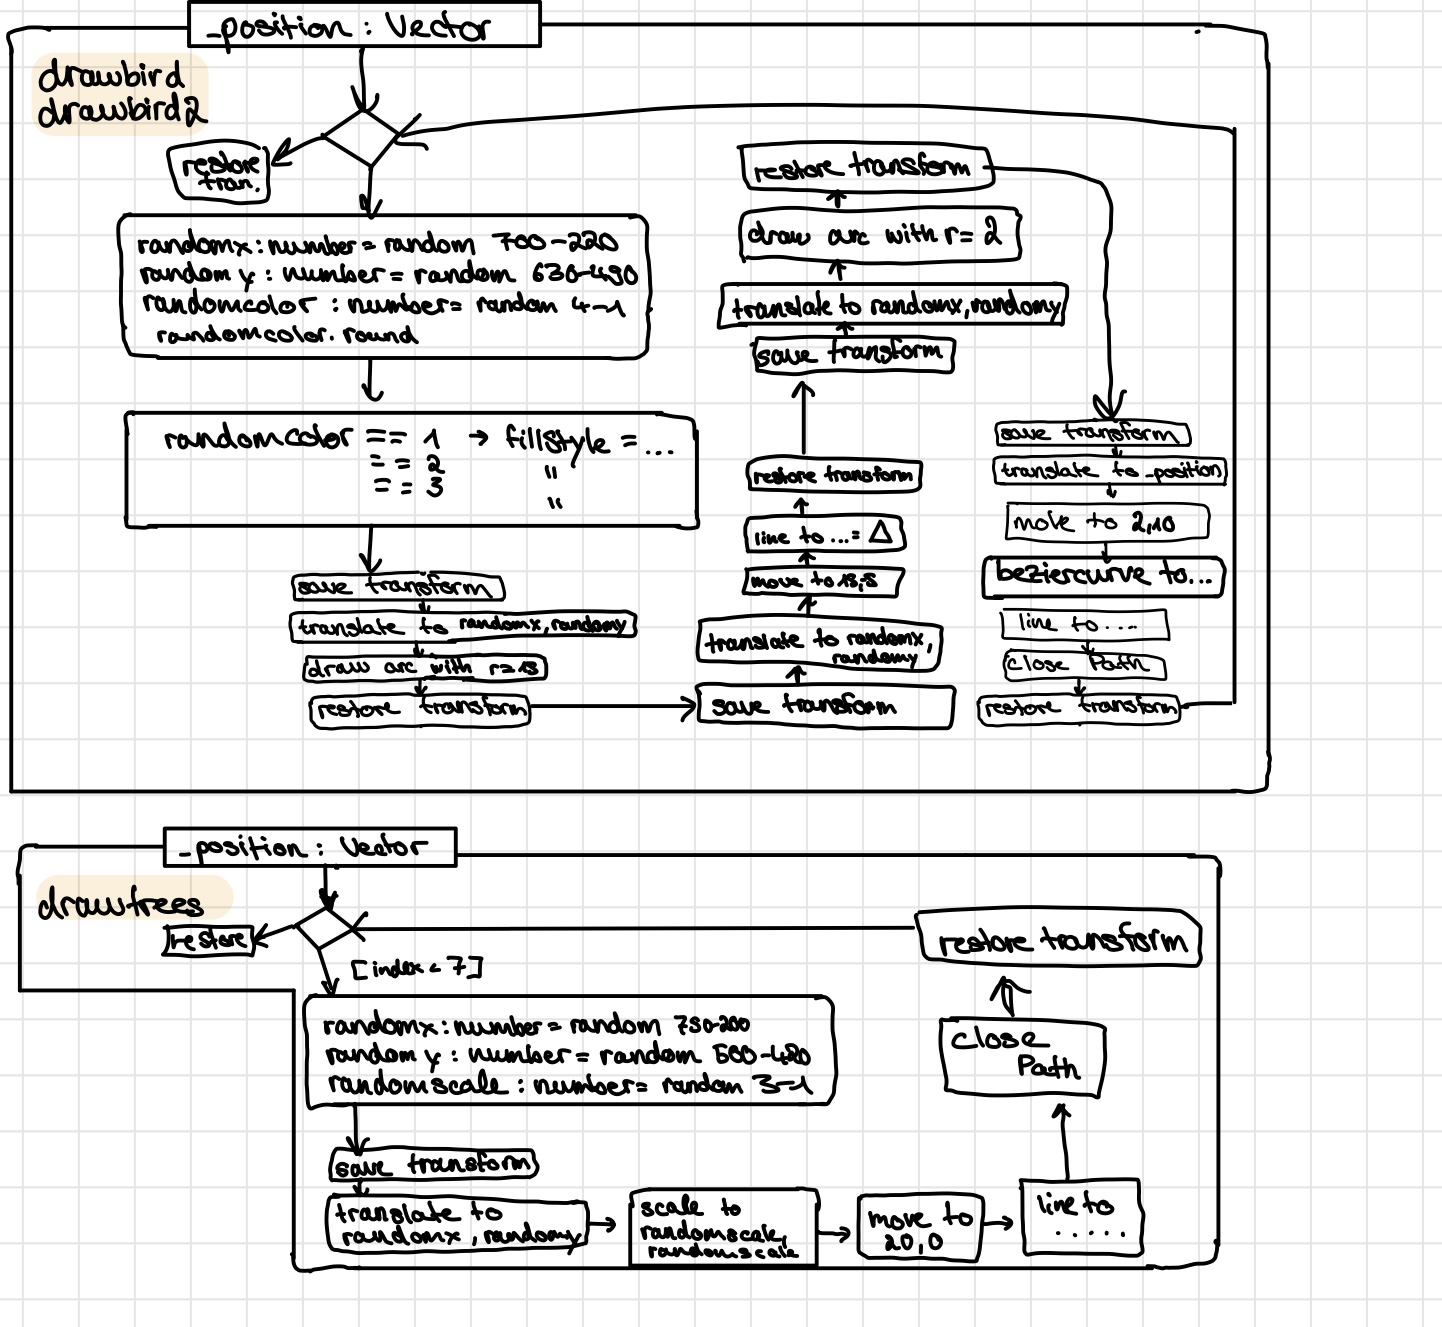 _position : Vector
drawbird
drawbird2
restore
tran.
randomx : number = random 700-220
random y : number = random 630-490
randomcolor : number = random 4-1
randomcolor. round
randomcolor == 1 → fillstyle = ...
== 2 "
== 3 "
save transform
translate to randomx, randomy
draw arc with r=15
restore transform
save transform
translate to randomx,
randomy
move to 15,-5
line to ... = Δ
restore transform
save transform
translate to randomx, randomy
draw arc with r= 2
restore transform
save transform
translate to _position
move to 2,10
beziercurve to...
line to ....
close Path
restore transform
_position : Vector
drawtrees
restore
[index < 7]
randomx : number = random 750-200
random y : number = random 500-480
randomscale : number = random 3-1
save transform
translate to
randomx , randomy
scale to
randomscale,
randomscale
move to
20,0
line to
.....
close
Path
restore transform